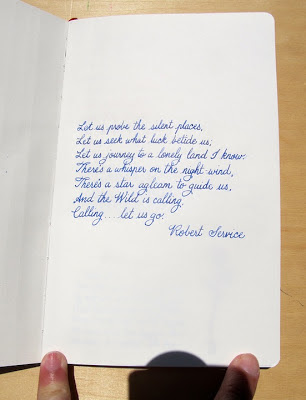 Let us probe the silent places,
Let us seek what luck betide us;
Let us journey to a lonely land I know.
There's a whisper on the night-wind,
There's a star agleam to guide us,
And the Wild is calling,
Calling....let us go.
Robert Service